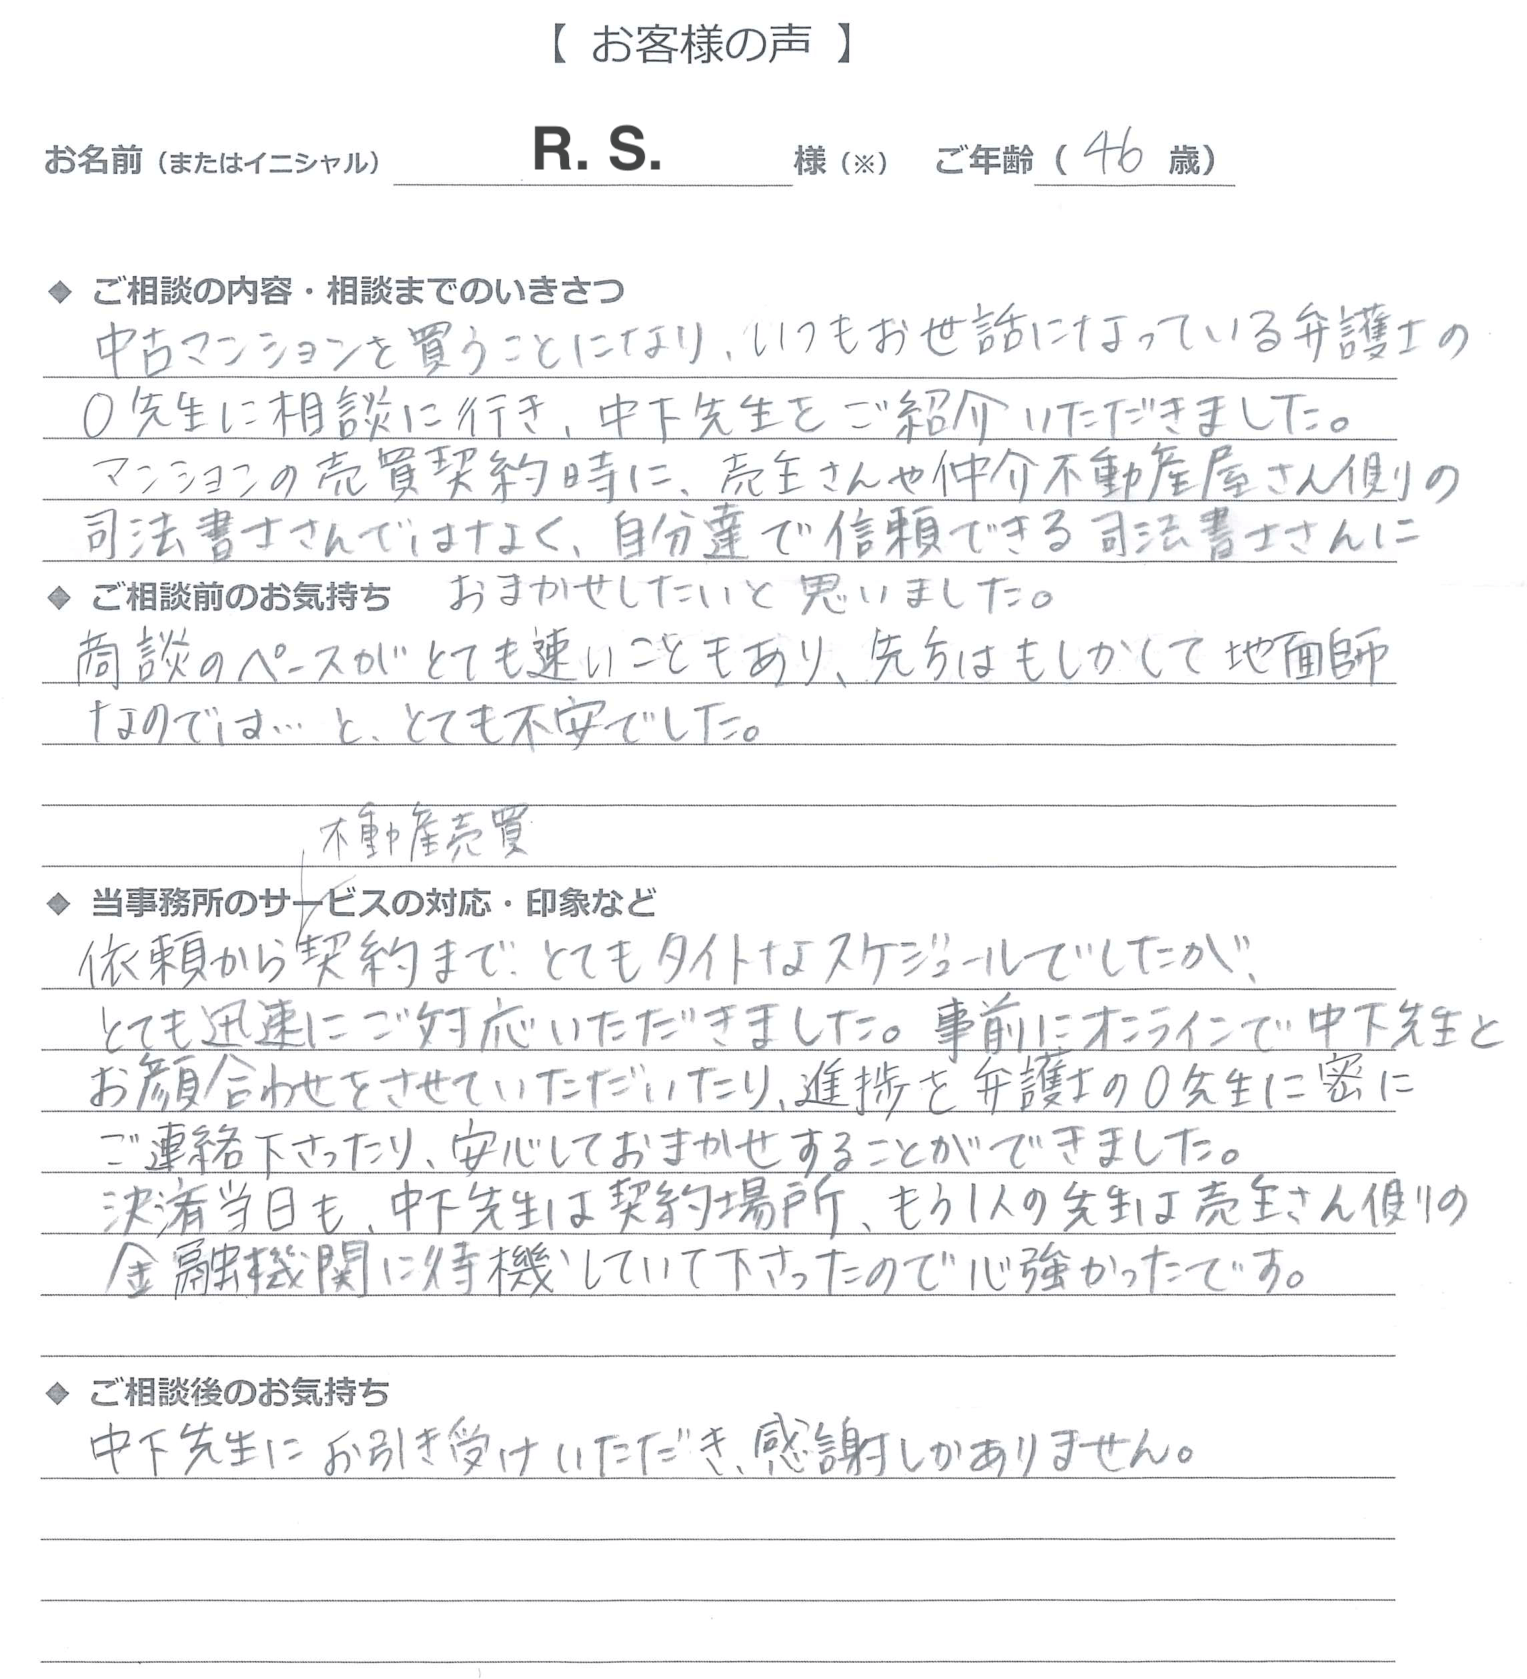 【 お客様の声 】
お名前（またはイニシャル） R. S. 様（※） ご年齢（ 46 歳）
◆ ご相談の内容・相談までのいきさつ
中古マンションを買うことになり、いつもお世話になっている弁護士の
O先生に相談に行き、中下先生をご紹介いただきました。
マンションの売買契約時に、売主さんや仲介不動産屋さん側の
司法書士さんではなく、自分達で信頼できる司法書士さんに
おまかせしたいと思いました。
◆ ご相談前のお気持ち
商談のペースがとても速いこともあり、先方はもしかして地面師
なのでは…と、とても不安でした。
◆ 当事務所のサービスの対応・印象など
不動産売買
依頼から契約まで、とてもタイトなスケジュールでしたが、
とても迅速にご対応いただきました。事前にオンラインで中下先生と
お顔合わせをさせていただいたり、進捗を弁護士のO先生に密に
ご連絡下さったり、安心しておまかせすることができました。
決済当日も、中下先生は契約場所、もう1人の先生は売主さん側の
金融機関に待機していて下さったので心強かったです。
◆ ご相談後のお気持ち
中下先生にお引き受けいただき、感謝しかありません。